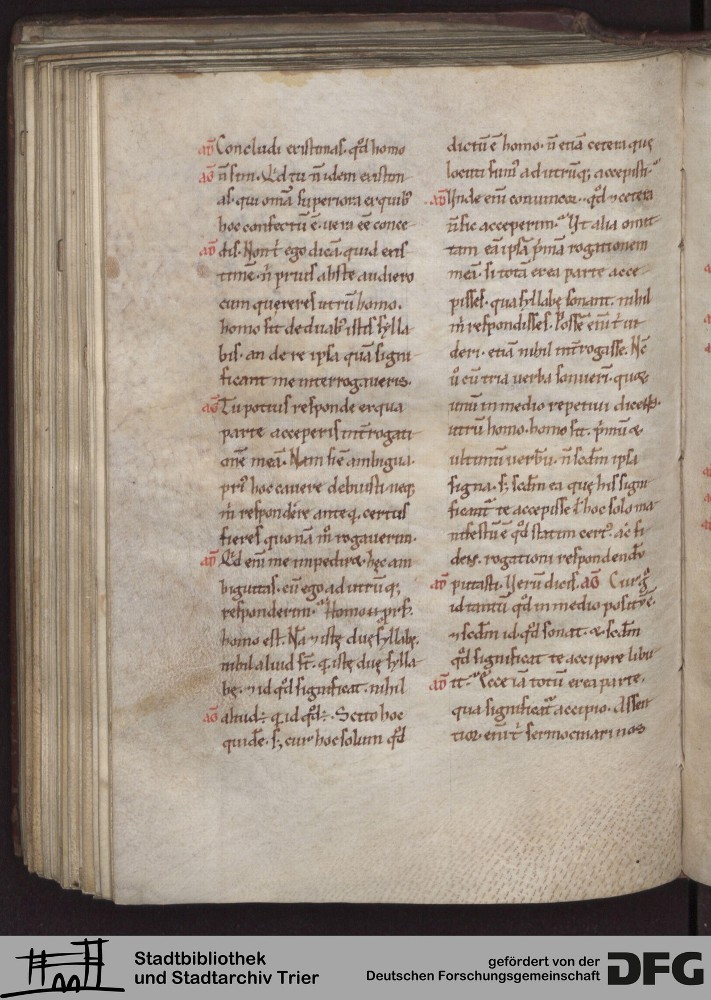 aḋ Concludi existimas. qd̄ homo
aḡ ñ sim. Qd̄ tu ñ idem existim
as. qui om̄a superiora ex quib;
hoc confectū ē. uera eē conce
aḋ dis. Non t̄ ego dicā quid exis
time. n̄ prius abs te audiero
cum quereres utrū homo.
homo sit de duab; istis sylla
bis. an de re ipsa quā signi
ficant me interrogaueris.
aḡ Tu potius responde ex qua
parte acceperis int̄rogati
onē meā. Nam si ē ambigua.
pri' hoc cauere debuisti neq;
m̄ respondere anteq̄ certus
fieres quonā m̊ rogauerim.
aḋ Qd̄ em̄ me impedire. hęc am
biguitas. cū ego ad utrūq;
responderim. Homo
homo est. Nā istę duę syllabę.
nihil aliud st̄. q̄ istę duę sylla
bę. id qd̄ significat. nihil
aḡ aliud÷ q̄ id qd̄÷. Scito hoc
quidē. s; cur hoc solum qd̄
dictū ē homo. n̄ etiā cetera quę
locuti sum' ad utrūq; accepisti.
aḋ Unde em̄ conuincor. qd̄ cetera
n̄ sic acceperim. Ut alia omit
tam eā ipsā p̄mā rogationem
meā. si totā ex ea parte acce
pisses. qua syllabę sonant. nihil
m̄ respondisses. Possē em̄ t̄ ui
deri. etiā nihil int̄rogasse. Nc̄
ů cū tria uerba sonuerī. quoꝝ
unū in medio repetiui dicens.
utrū homo. homo sit. p̄mū &
ultimū uerbū. n̄ scd̄m ipsa
signa. s; scd̄m ea quę his signi
ficant' te accepisse t̄ hoc solo ma
nifestū ē qd̄ statim cert'. ac fi
dens. rogationi respondendū
aḋ putasti. Uerū dicis. aḡ Cur g̊
id tantū qd̄ in medio positū ē.
scd̄m id qd̄ sonat. & scd̄m
qd̄ significat te accipere libu
aḋ it. Ecce iā totū ex ea parte.
qua significat' accipio. Assen
tior. em̄ t̄ sermocinari nos
Stadtbibliothek
und Stadtarchiv Trier
gefördert von der
Deutschen Forschungsgemeinschaft
DFG